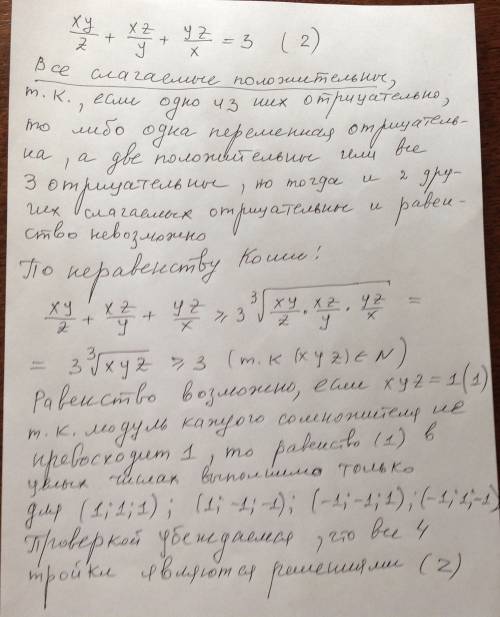 xy/z + xz/y + yz/x = 3 (2)
Все слагаемые положительны,
т.к., если одно из них отрицательно,
то либо одна переменная отрицатель-
на, а две положительны или все
3 отрицательны, но тогда и 2 дру-
гих слагаемых отрицательны и равен-
ство невозможно
По неравенству Коши:
xy/z + xz/y + yz/x ≥ 3 ∛(xy/z · xz/y · yz/x) =
= 3 ∛xyz ≥ 3 (т.к (xyz) ∈ N)
Равенство возможно, если xyz = 1 (1)
т.к. модуль каждого сомножителя не
превосходит 1, то равенство (1) в
целых числах выполнимо только
для (1;1;1); (1;-1;-1); (-1;-1;1); (-1;1;-1)
Проверкой убеждаемся, что все 4
тройки являются решениями (2)